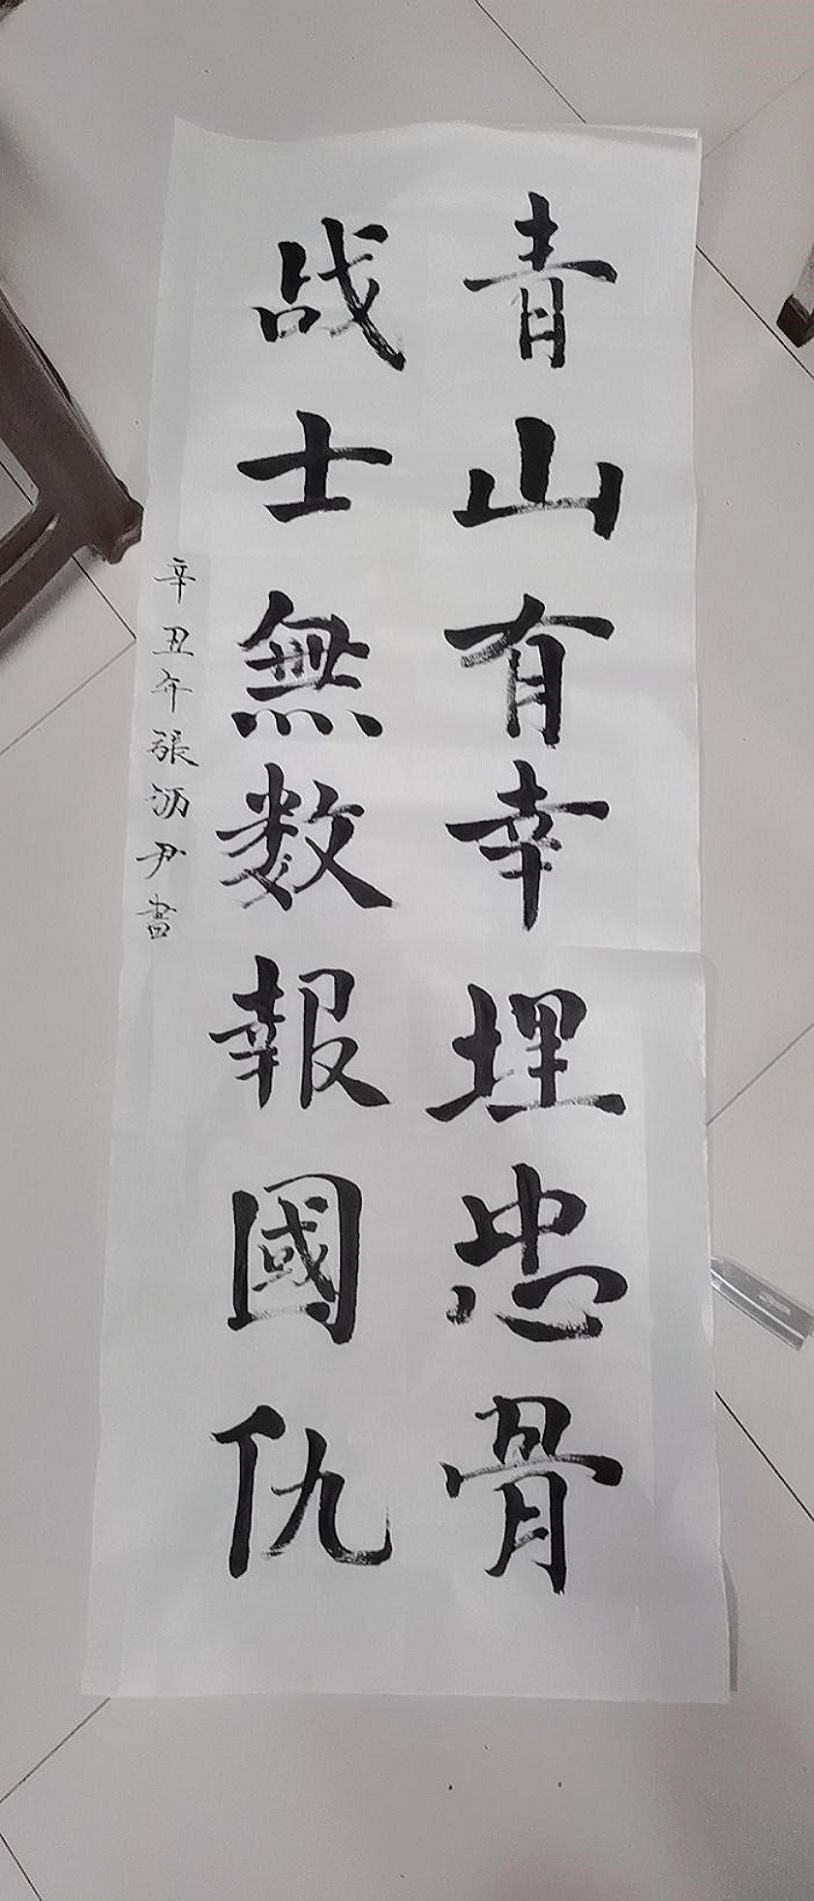 青山有幸埋忠骨
战士無数報國仇
辛丑年張沥尹書